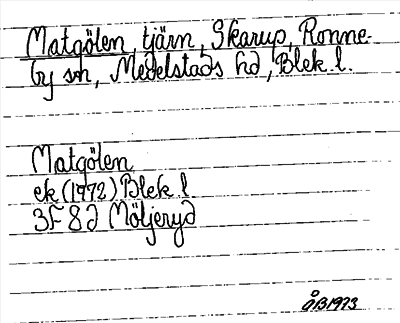 Matgölen, tjärn, Skarup, Ronne-
by sn, Medelstads hd, Blek. l.
Matgölen
ek (1972) Blek l
3F 8d Möljeryd
ÅB 1973